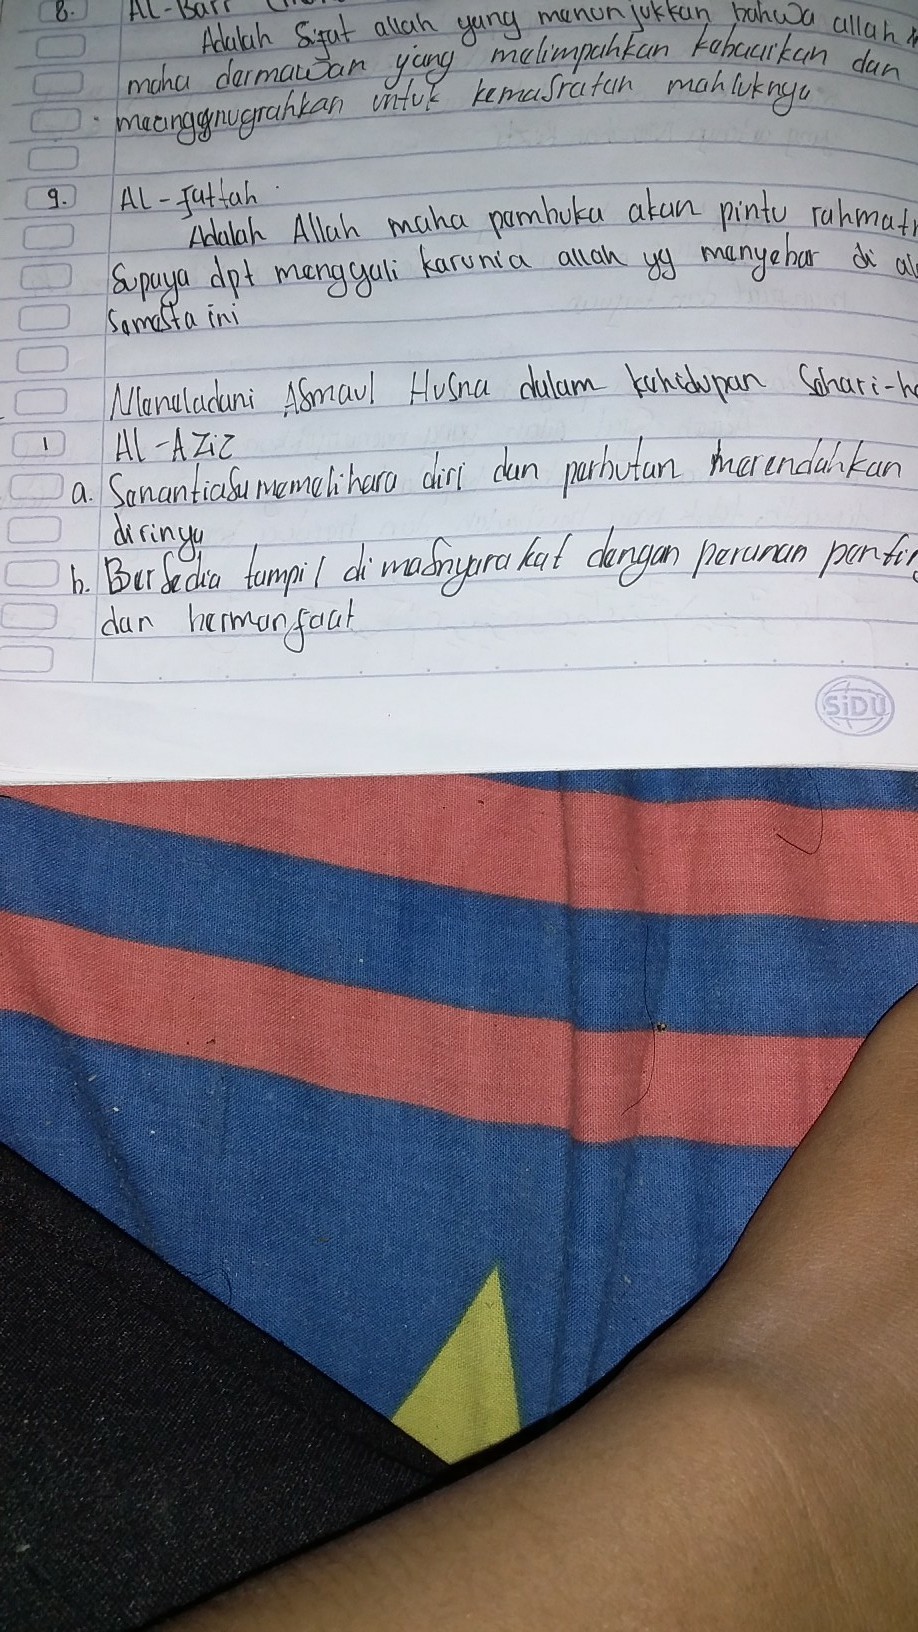 8. Al-Barr
Adalah Sifat allah yang menunjukkan bahwa allah
maha dermawan yang melimpahkan kebaikan dan
meangggnugrahkan untuk kemasratan mahluknya
9. Al-fattah
Adalah Allah maha pembuka akan pintu rahmat
Supaya dpt menggali karunia allah yg menyebar di al
Semesta ini
Meneladani Asmaul Husna dalam kehidupan Sehari-ha
1 Al-Aziz
a. Senantiasa memelihara diri dan perbutan merendahkan
dirinya
b. Bersedia tampil di masnyarakat dengan peranan pentin
dan bermanfaat
SiDU